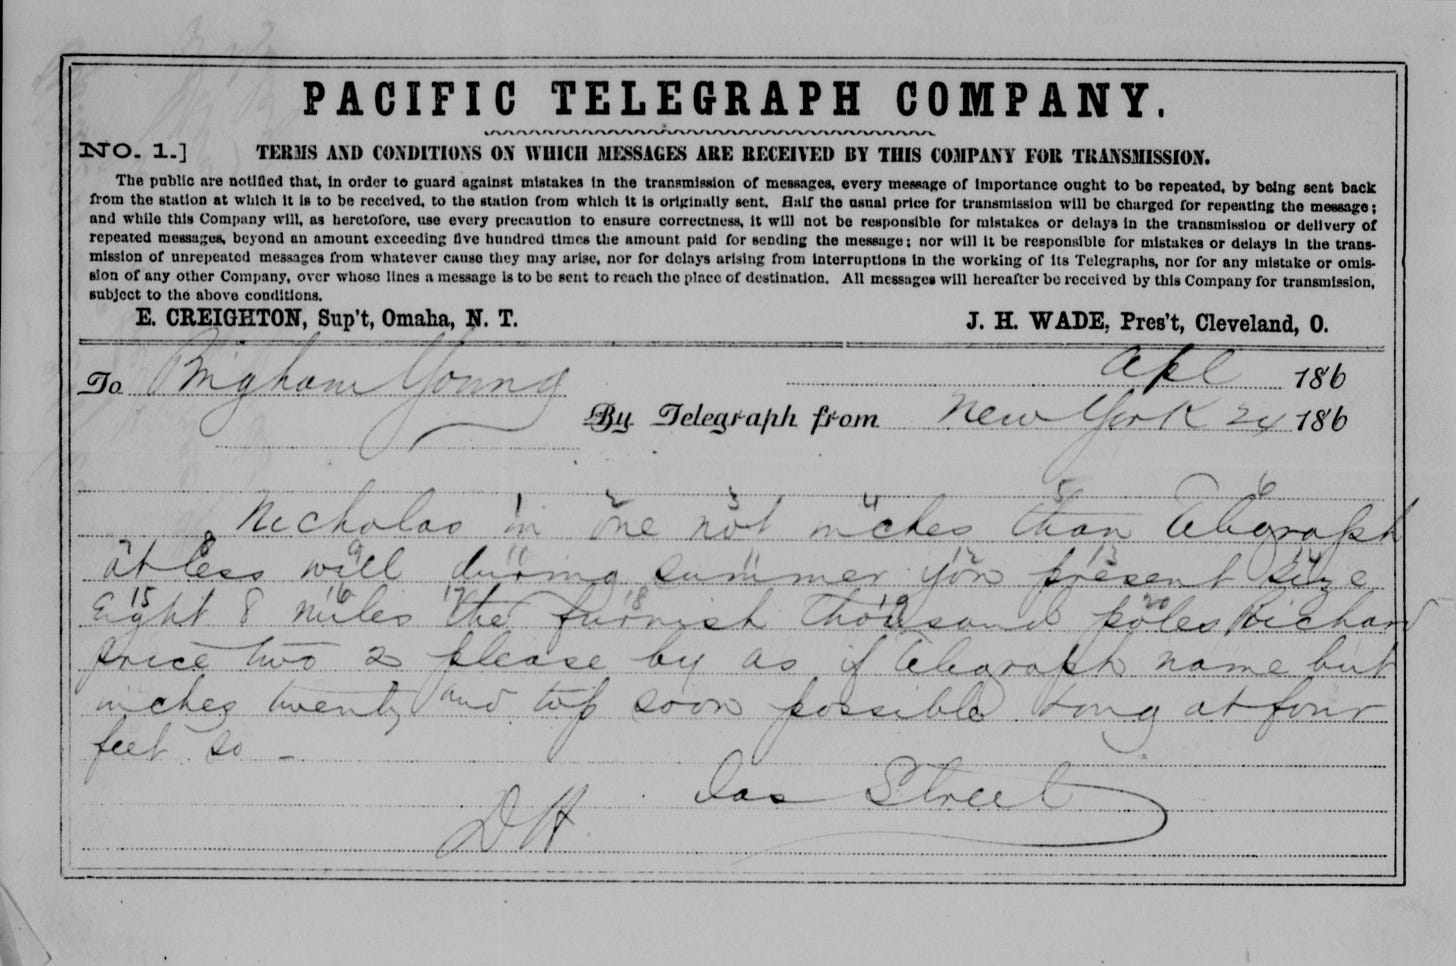 PACIFIC TELEGRAPH COMPANY.
NO. 1.] TERMS AND CONDITIONS ON WHICH MESSAGES ARE RECEIVED BY THIS COMPANY FOR TRANSMISSION.
The public are notified that, in order to guard against mistakes in the transmission of messages, every message of importance ought to be repeated, by being sent back
from the station at which it is to be received, to the station from which it is originally sent. Half the usual price for transmission will be charged for repeating the message;
and while this Company will, as heretofore, use every precaution to ensure correctness, it will not be responsible for mistakes or delays in the transmission or delivery of
repeated messages, beyond an amount exceeding five hundred times the amount paid for sending the message; nor will it be responsible for mistakes or delays in the trans-
mission of unrepeated messages from whatever cause they may arise, nor for delays arising from interruptions in the working of its Telegraphs, nor for any mistake or omis-
sion of any other Company, over whose lines a message is to be sent to reach the place of destination. All messages will hereafter be received by this Company for transmission,
subject to the above conditions.
E. CREIGHTON, Sup't, Omaha, N. T. J. H. WADE, Pres't, Cleveland, O.
To Brigham Young Apl 186
By Telegraph from New York 24 186
1 2 3 4 5 6
Nicholas in one not inches than Telegraph
7 8 9 10 11 12 13 14
at less will during summer you present size
15 16 17 18 19 20
Eight 8 miles the furnish thousand poles Richard
price two 2 please by as if Telegraph name but
inches twenty and top soon possible long at four
feet so -
Jas Street
D H